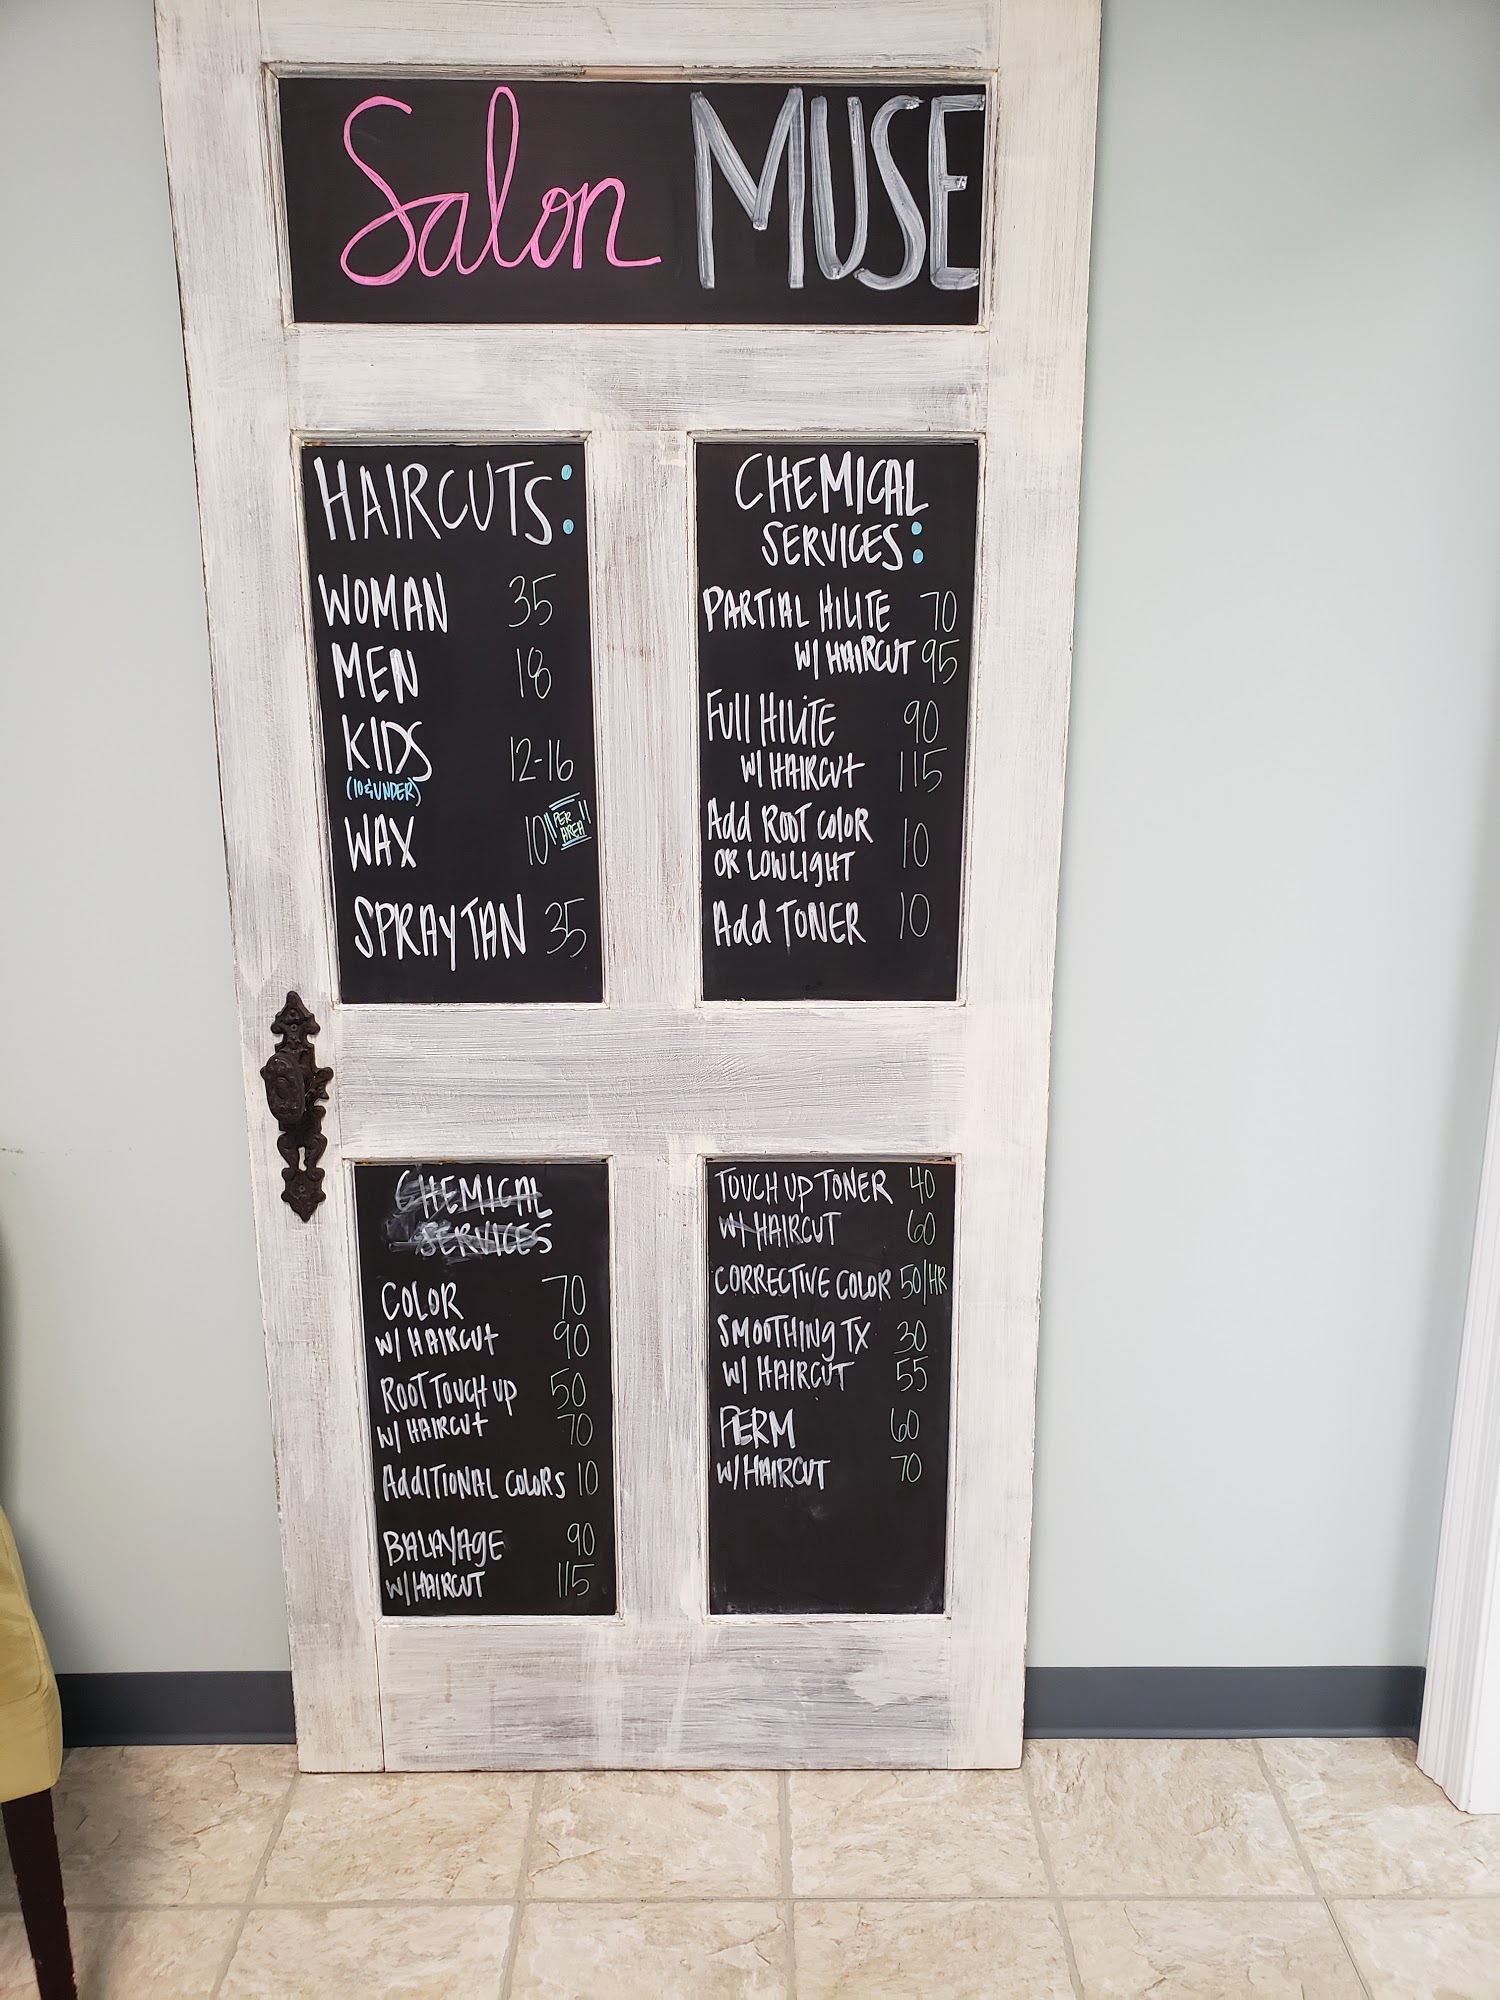 Salon MUSE
HAIRCUTS:
WOMAN 35
MEN 18
KIDS 12-16
(10 & UNDER)
WAX 10 "PER AREA"
SPRAY TAN 35
CHEMICAL
SERVICES:
PARTIAL HILITE 70
W/ HAIRCUT 95
Full HILITE 90
W/ HAIRCUT 115
Add ROOT COLOR
OR LOWLIGHT 10
Add TONER 10
CHEMICAL
SERVICES
COLOR 70
W/ HAIRCUT 90
ROOT TOUCH UP 50
W/ HAIRCUT 70
AddITIONAL COLORS 10
BALAYAGE 90
W/ HAIRCUT 115
TOUCH UP TONER 40
W/ HAIRCUT 60
CORRECTIVE COLOR 50/HR
SMOOTHING TX 30
W/ HAIRCUT 55
PERM 60
W/ HAIRCUT 70